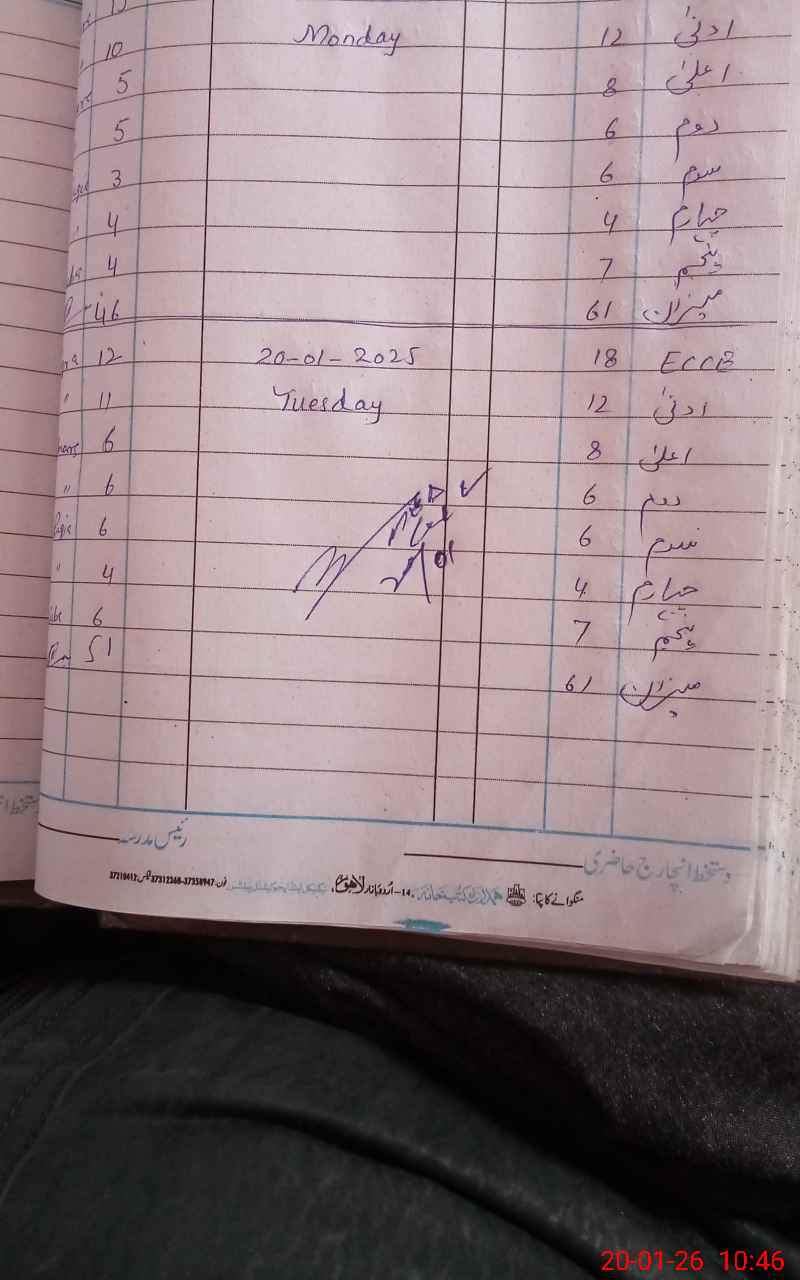 10 Monday 12 ادنیٰ
5 8 اعلیٰ
5 6 دوم
3 6 سوم
4 4 چہارم
4 7 پنجم
46 61 میزان
12 20-01-2025 18 ECCE
" 11 Tuesday 12 ادنیٰ
6 8 اعلیٰ
" 6 6 دوم
6 6 سوم
" 4 4 چہارم
6 7 پنجم
51 61 میزان
رئیس مدرسہ
دستخط انچارج حاضری
منگوانے کا پتہ: ہمدرد کتب خانہ 14-اُردو بازار لاہور، فون: 37358947-37312268 فیکس: 37210412
20-01-26 10:46